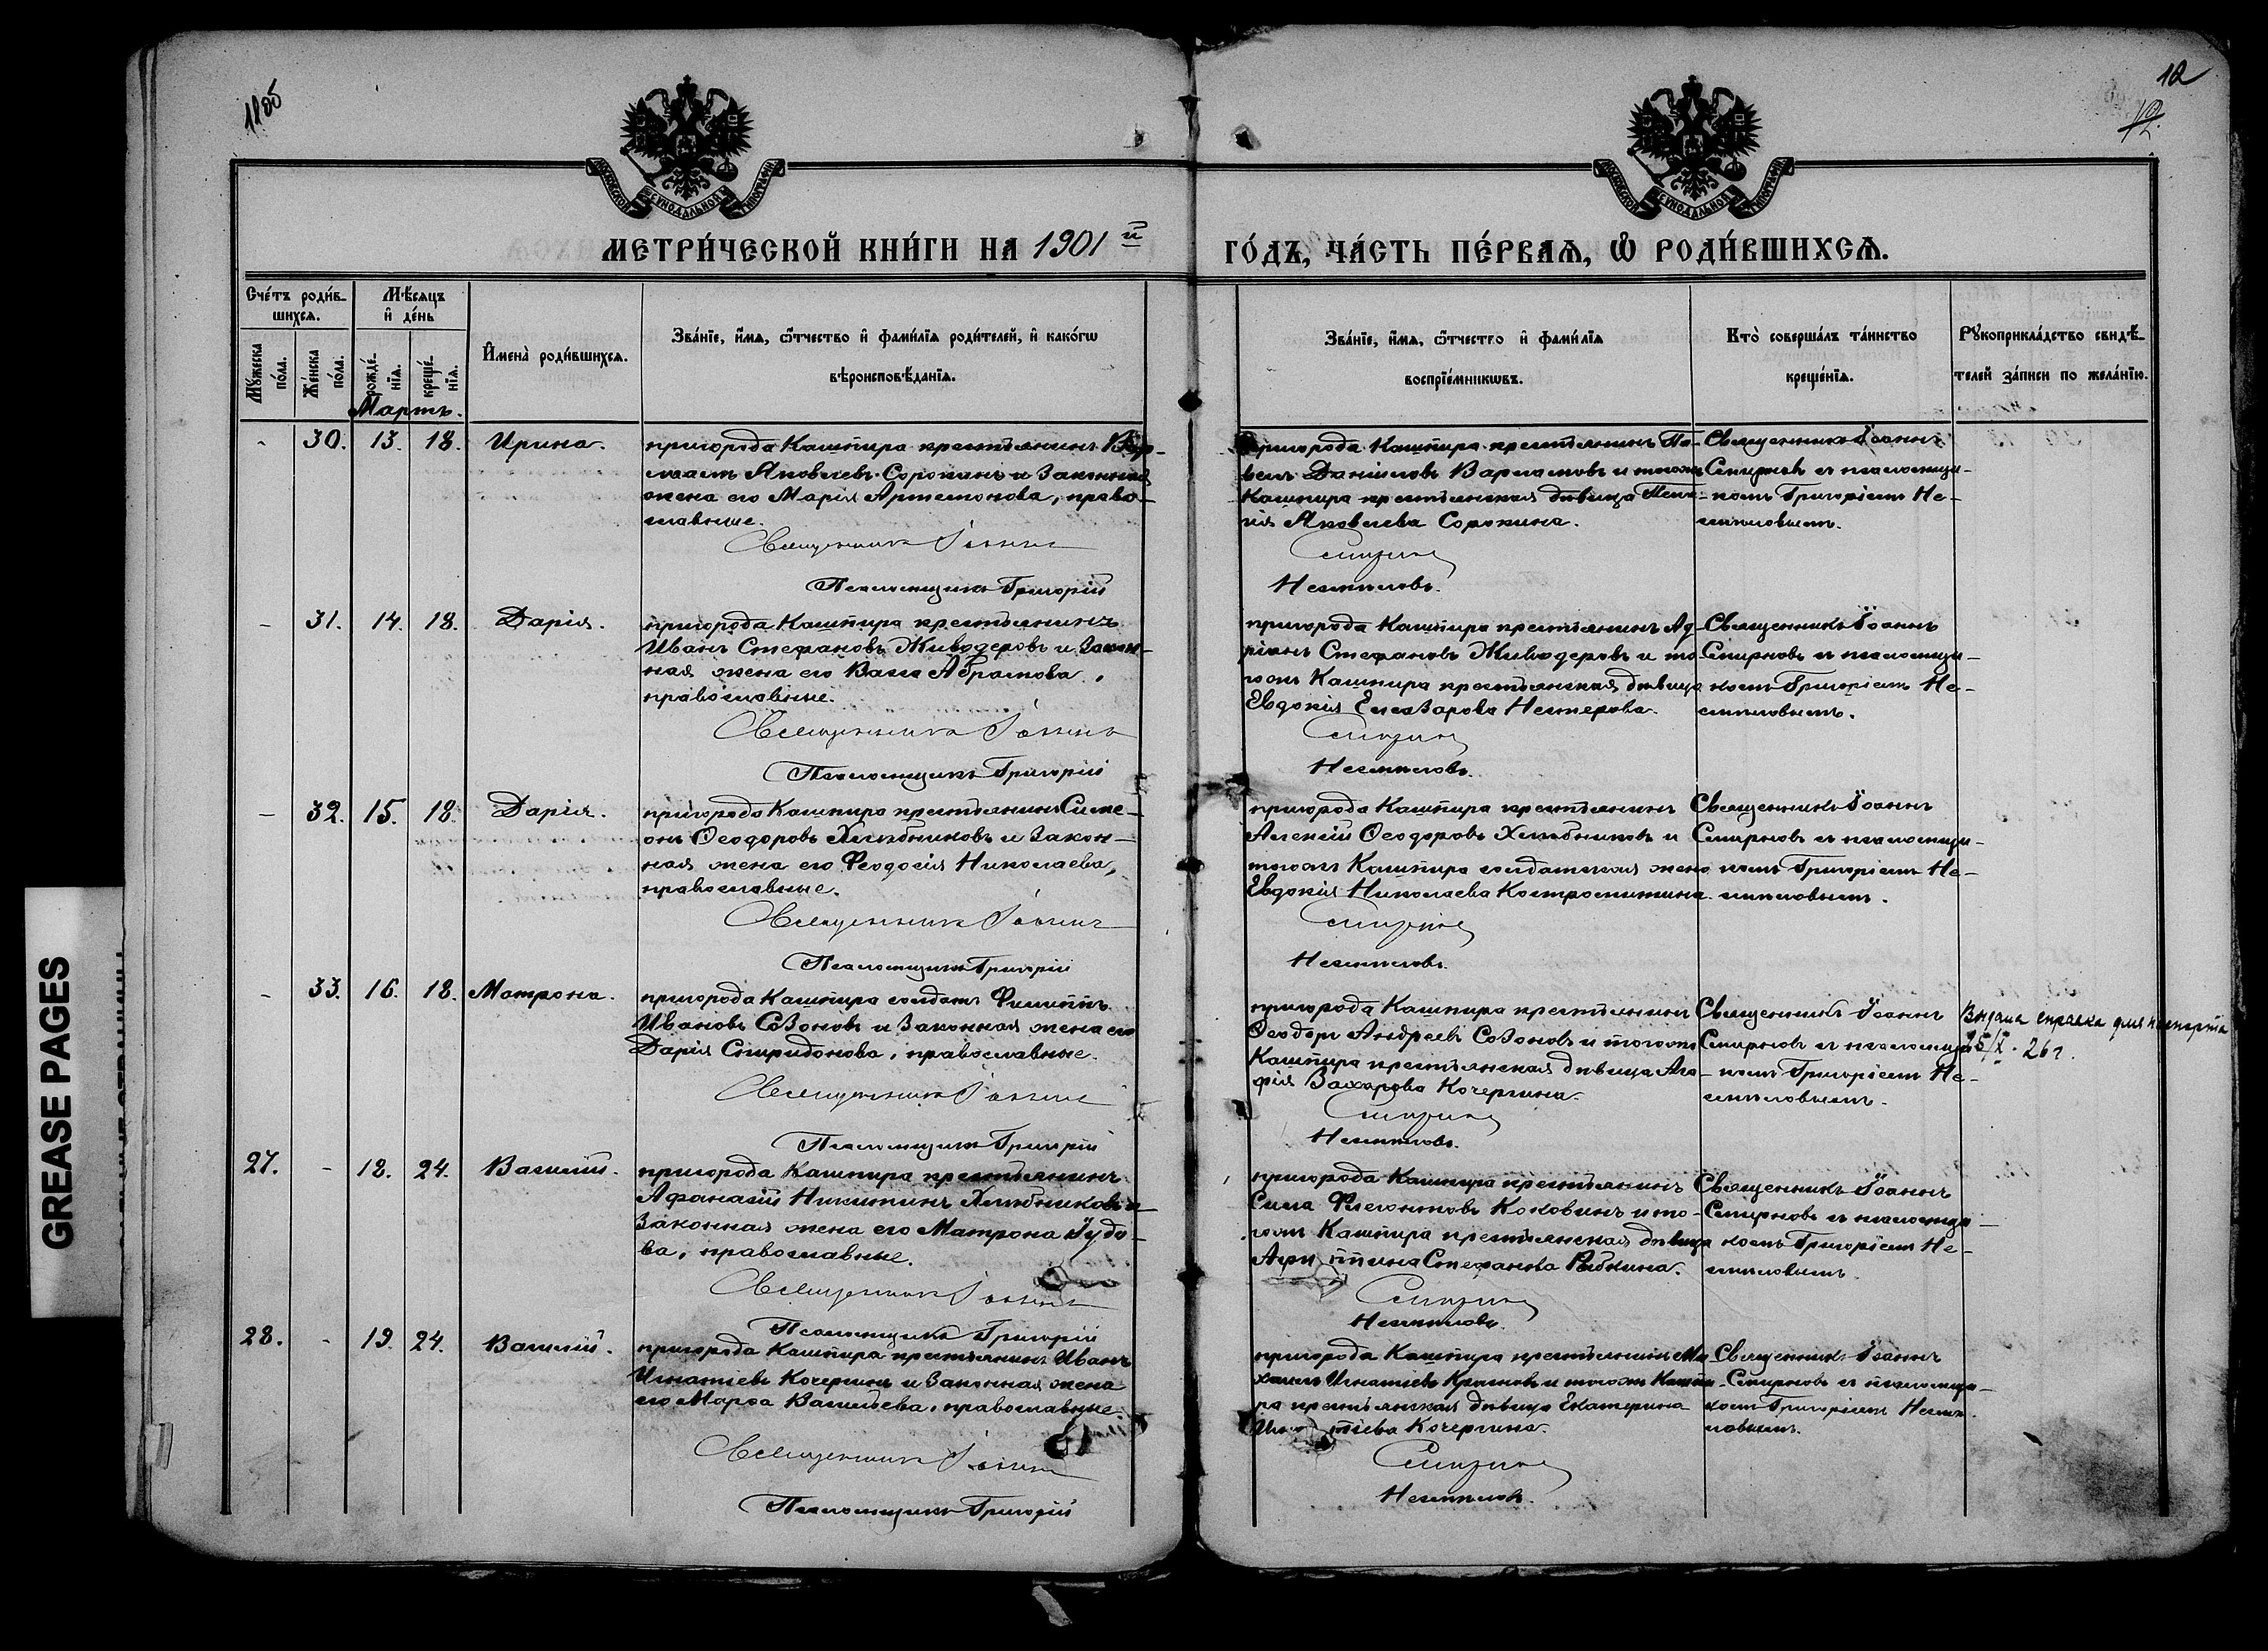 11об
12
12.
МЕТРИ́ЧЕСКОЙ КНИ́ГИ НА 1901й ГО́ДЪ, ЧА́СТЬ ПЕ́РВАѦ, Ѿ РОДИ́ВШИХСѦ.
Сче́тъ роди́вшихсѧ.
Мꙋ́жеска по́ла.
Же́нска по́ла.
Мѣ́сѧцъ и҆ де́нь
рожде́нїѧ.
креще́нїѧ.
И҆мена̀ роди́вшихсѧ.
Зва́нїе, и҆́мѧ, ѻ҆́тчество и҆ фами́лїѧ роди́телей, и҆ како́гѡ
вѣроисповѣ́данїѧ.
Зва́нїе, и҆́мѧ, ѻ҆́тчество и҆ фами́лїѧ
воспрїе́мникѡвъ.
Кто̀ соверша́лъ та́инство
креще́нїѧ.
Рꙋкоприкла́дство свидѣ́телей за́писи по жела́нїю.
Мартъ.
- 30. 13. 18. Ирина.
пригорода Кашпира крестьянинъ Вар-
лаамъ Яковлевъ Сорокинъ и законная
жена его Марія Артемонова, право-
славные.
Священникъ Іоаннъ
Псаломщикъ Григорій
пригорода Кашпира крестьянинъ Па-
велъ Даніиловъ Варламовъ и тогожъ
Кашпира крестьянская дѣвица Пела-
гія Яковлева Сорокина.
Смирнов
Несмѣловъ.
Священникъ Іоаннъ
Смирновъ съ псаломщи-
комъ Григоріемъ Не-
смѣловымъ.
- 31. 14. 18. Дарія.
пригорода Кашпира крестьянинъ
Иванъ Стефановъ Живодеровъ и закон-
ная жена его Васса Абрамова,
православные.
Священникъ Іоаннъ
Псаломщикъ Григорій
пригорода Кашпира крестьянинъ Ад-
ріанъ Стефановъ Живодеровъ и то-
гожъ Кашпира крестьянская дѣвица
Евдокія Елеазарова Нестерова.
Смирнов
Несмѣловъ.
Священникъ Іоаннъ
Смирновъ съ псаломщи-
комъ Григоріемъ Не-
смѣловымъ.
- 32. 15. 18. Дарія.
пригорода Кашпира крестьянинъ Симе-
онъ Ѳеодоровъ Хлѣбниковъ и закон-
ная жена его Феодосія Николаева,
православные.
Священникъ Іоаннъ
Псаломщикъ Григорій
пригорода Кашпира крестьянинъ
Алексій Ѳеодоровъ Хлѣбниковъ и
тогожъ Кашпира солдатская жена
Евдокія Николаева Костромитина.
Смирнов
Несмѣловъ.
Священникъ Іоаннъ
Смирновъ съ псаломщи-
комъ Григоріемъ Не-
смѣловымъ.
- 33. 16. 18. Матрона.
пригорода Кашпира солдатъ Филиппъ
Ивановъ Созоновъ и законная жена его
Дарія Спиридонова, православные.
Священникъ Іоаннъ
Псаломщикъ Григорій
пригорода Кашпира крестьянинъ
Ѳеодоръ Андреевъ Созоновъ и тогожъ
Кашпира крестьянская дѣвица Ага-
фія Захарова Кочергина.
Смирнов
Несмѣловъ.
Священникъ Іоаннъ
Смирновъ съ псаломщи-
комъ Григоріемъ Не-
смѣловымъ.
Выдана справка для паспорта
25/X - 26 г.
27. - 18. 24. Василій.
пригорода Кашпира крестьянинъ
Афанасій Никитинъ Хлѣбниковъ и
законная жена его Матрона Іудо-
ва, православные.
Священникъ Іоаннъ
Псаломщикъ Григорій
пригорода Кашпира крестьянинъ
Сила Флегонтовъ Коковинъ и то-
гожъ Кашпира крестьянская дѣвица
Агриппина Стефанова Рыбкина.
Смирнов
Несмѣловъ.
Священникъ Іоаннъ
Смирновъ съ псаломщи-
комъ Григоріемъ Не-
смѣловымъ.
28. - 19. 24. Василій.
пригорода Кашпира крестьянинъ Иванъ
Игнатіевъ Кочергинъ и законная жена
его Марѳа Васильева, православные.
Священникъ Іоаннъ
Псаломщикъ Григорій
пригорода Кашпира крестьянинъ Ми-
хаилъ Игнатіевъ Красновъ и тогожъ Кашпи-
ра крестьянская дѣвица Екатерина
Игнатіева Кочергина.
Смирнов
Несмѣловъ.
Священникъ Іоаннъ
Смирновъ съ псаломщи-
комъ Григоріемъ Несмѣ-
ловымъ.
GREASE PAGES